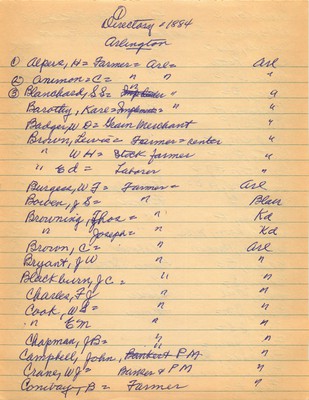 Directory = 1884
Arlington
① Alpers, H = Farmer = Arl = Arl
② Animon = C = " " "
③ Blanchard, S S = " "
Barotty, Kare = " "
Badger, W D = Grain Merchant "
Brown, Lewis = Farmer = renter "
" W H = Stock farmer "
" Ed = Laborer "
Burgess, W F = Farmer = Arl
Bowen, J S = " Blair
Browning, Thos = " Kd
" Joseph = " Kd
Brown, C = " Arl
Bryant, J W " "
Blackburn, J C = " "
Charles, F J " "
Cook, W S = " "
" E M " "
Chapman, J B = " "
Campbell, John, Banker & P M "
Crane, W J = Banker & P M "
Conway, B = Farmer "